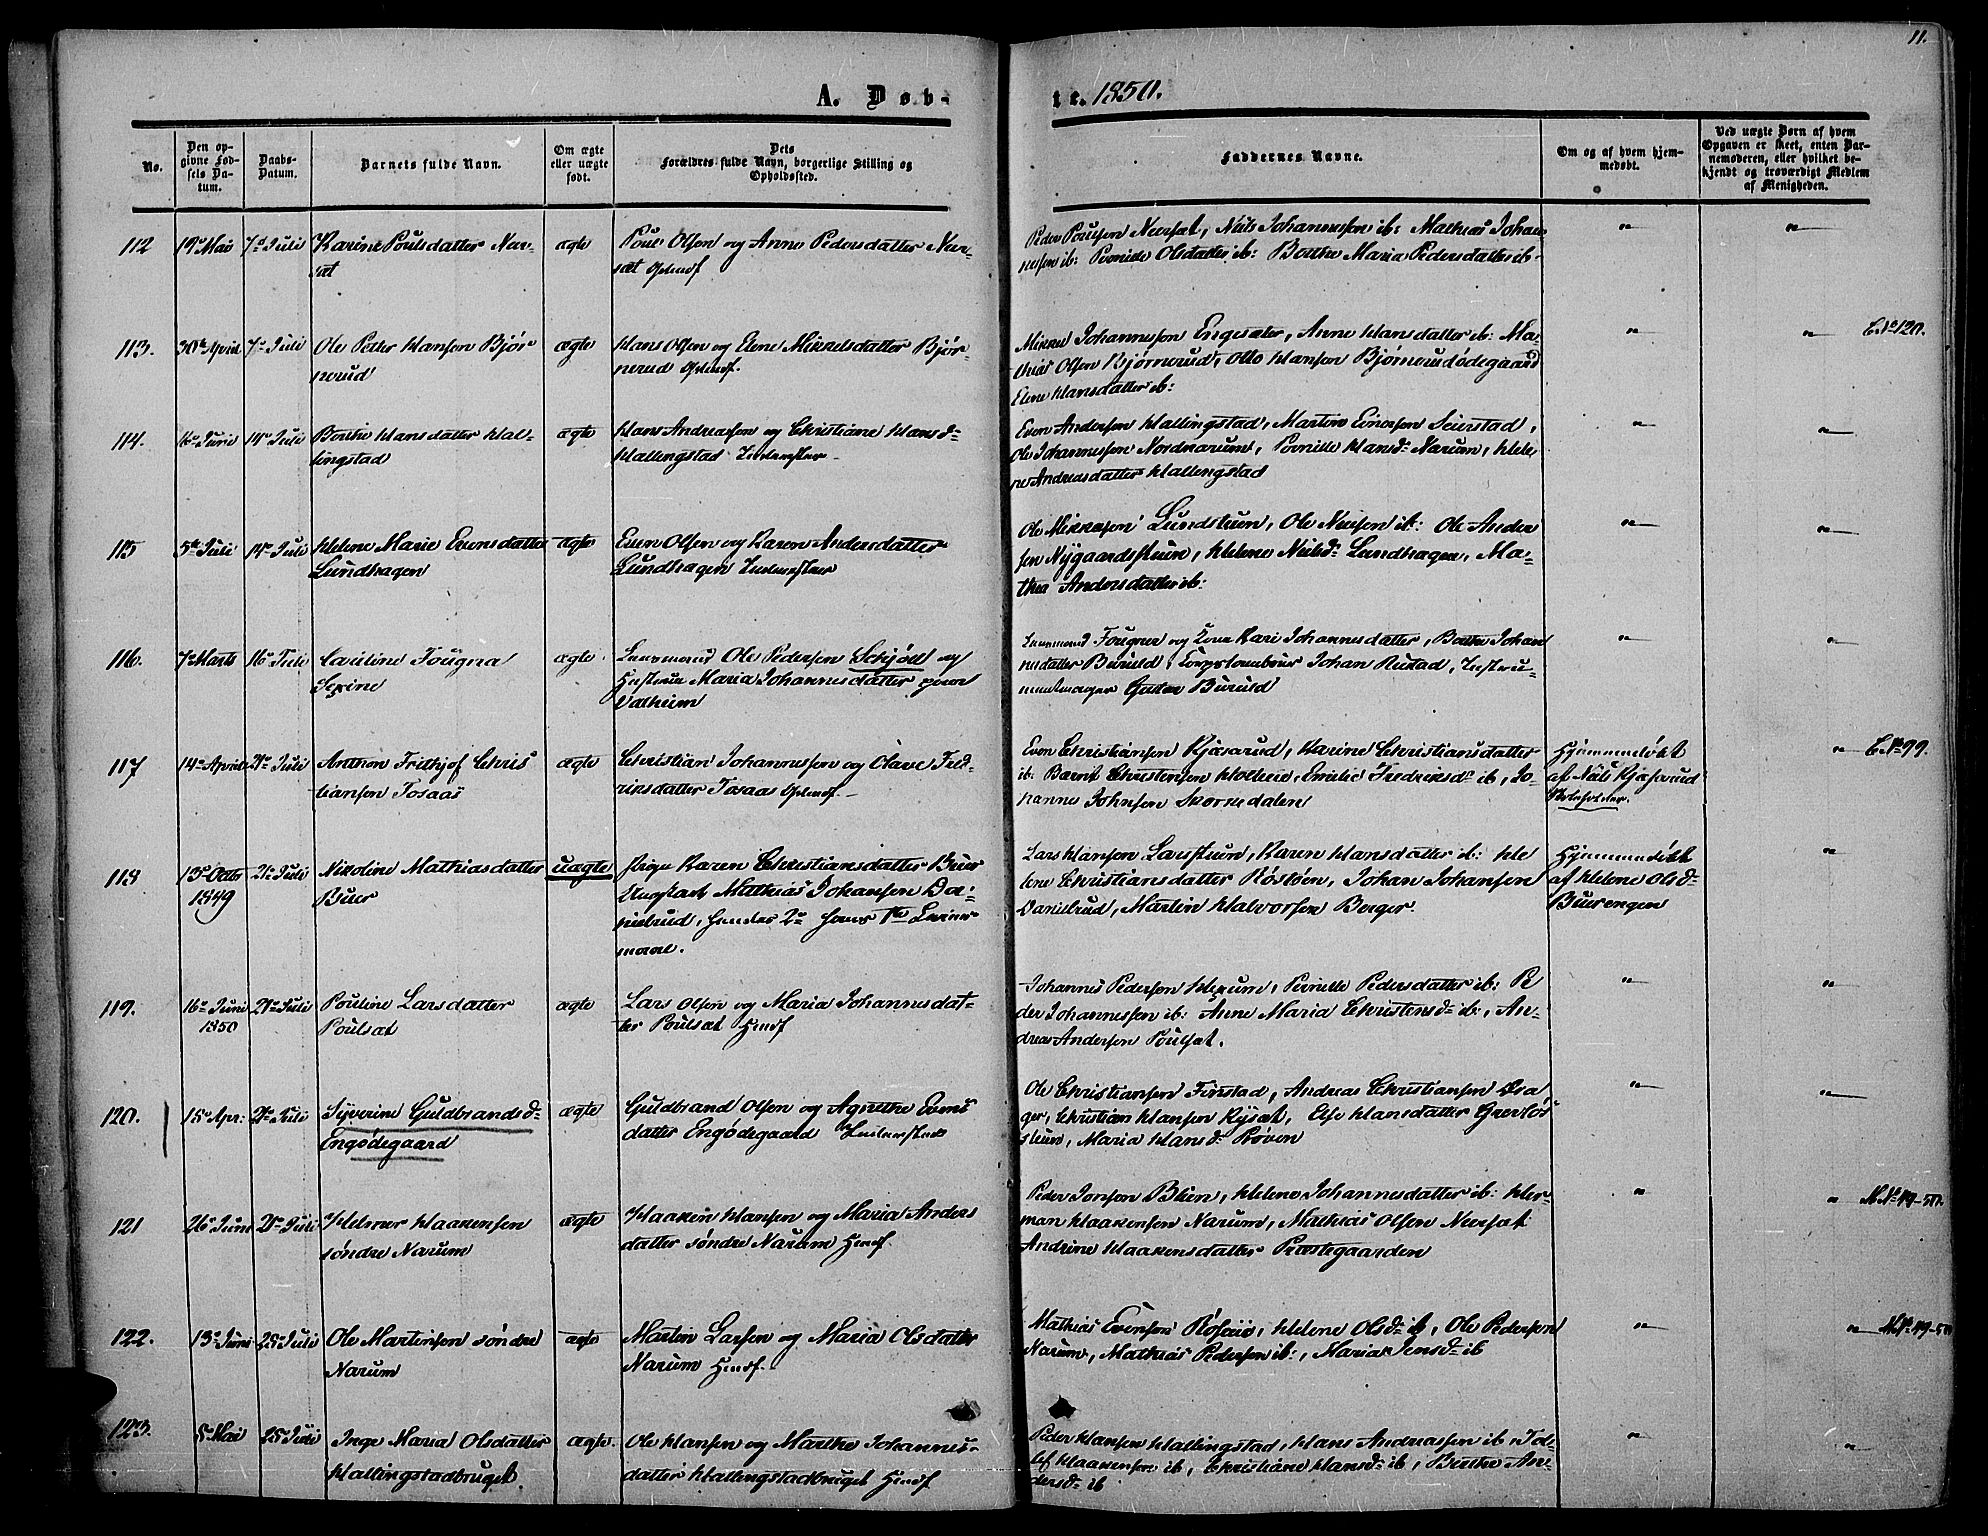 11.
A. Døb-
te. 1850.
No.
Den op-
givne Fød-
sels Da-
tum.
Daabs-
Datum.
Barnets fulde Navn.
Om ægte
eller uægte
født.
Dets
Forældres fulde Navn, borgerlige Stilling og
Opholdssted.
Faddernes Navne.
Om og af hvem hjem-
medøbt.
Ved uægte Børn af hvem
Opgaven er skeet, enten Bar-
nemoderen, eller hvilket be-
kjendt og troværdigt Medlem
af Menigheden.
112
19de Mai
7de Juli
Karine Poulsdatter Nær-
sæt
ægte
Poul Olsen og Anne Pedersdatter Nær-
sæt
Peder Poulsen Nærsæt, Niels Johannessen ib: Mathias Johan
nessen ib: Pernille Olsdatter ib: Berthe Maria Pedersdatter ib-
113.
30te April
7de Juli
Ole Peter Hansen Bjør
nerud
ægte
Hans Olsen og Elene Mikkelsdatter Bjør-
nerud
Mikkel Johannesson Engesæter, Anne Hansdatter ib: Ma-
thias Olsen Bjørnerud, Otto Hansen Bjørnerudødegaard
Elene Hansdatter ib:
C No 120.
114.
14de Juli
Berthe Hansdatter Hal-
lingstad
ægte
Hans Andreassen og Christiane Hansd-
Hallingstad
Even Andersen Hallingstad, Martin Einersen Seierstad,
Ole Johannessen Nordnarum, Pernille Hansd- Narum, Hele
ne Andreasdatter Hallingstad
115
5te Juli
14de Juli
Helene Marie Evensdatter
Lundhagen
ægte
Even Olsen og Karen Andersdatter
Lundhagen
Ole Mikkelsen Lundstuen, Ole Nielsen ib: Ole Ander
sen Nygaardstuen, Helene Nielsd- Lundhagen, Ma-
thea Andersdatter ib:
116.
7de Marts
16de Juli
Caroline Fougna
Sexine
ægte
Lensmand Ole Pedersen Schjøll og
Hustru Maria Johannesdatter paa
Valheim
Lensmand Fougner og Kone Kari Johannesdatter, Berthe Johan
nesdatter Buruld, Corpstambour Johan Rustad, Instru-
mentmager Gustav Buruld
117
14de April
21de Juli
Anthon Frithjof Chris
tiansen Tosaas
ægte
Christian Johannessen og Olave Fred-
riksdatter Tosaas
Even Christiansen Kjæsarud, Karine Christiansdatter
ib: Bernt Christensen Holthe, Emilie Fredriksd- ib, Jo-
hannes Johnsen Skonkedalen
Hjemmedøbt
af Niels Kjæsarud
Skoleholder.
C No 99.
118
13de Octbr
1849
21de Juli
Nikoline Mathiasdatter
Buer
uægte
Pige Karen Christiansdatter Buer
Ungkarl Mathias Johansen Da-
nielrud, hendes 2det hans 1ste Leiers
maal.
Lars Hansen Larsstuen, Karen Hansdatter ib: He
lene Christiansdatter Røstøen, Johan Johansen
Danielrud, Martin Halvorsen Berger.
Hjemmedøbt
af Helene Olsd-
Buerengen
119.
16de Juni
1850
21de Juli
Pouline Larsdatter
Poulsæt
ægte
Lars Olsen og Maria Johannesdat-
ter Poulsæt Huusf
Johannes Pedersen Hexum, Pernille Pedersdatter ib: Pe
der Johannessen ib: Anne Maria Christensd- ib:, An-
dreas Andersen Poulsæt.
120.
15de Apr:
21de Juli
Syverine Guldbrandsd-
Engødegaard
ægte
Guldbrand Olsen og Agnethe Evens
datter Engødegaard
Ole Christiansen Finstad, Andreas Christiansen
ger, Christian Hansen Rysæt, Else Hansdatter
stuen, Maria Hansd- Røven
121
26de Juni
21de Juli
Helmer Haakensen
søndre Narum
ægte
Haaken Hansen og Maria Anders
datter søndre Narum Huusf.
Peder Jonsen Blien, Helene Johannesdatter ib: Her-
man Haakensen Narum, Mathias Olsen Nærsæt
Andrine Haakensdatter Præstegaarden
M No 49-50.
122.
13de Juni
28de Juli
Ole Martinsen søndre
Narum
ægte
Martin Larsen og Maria Olsdatter
Narum Huusf.
Mathias Evensen, Helene Olsd- ib, Ole Pedersen
Narum, Mathias Pedersen ib:, Maria Jensd- ib
M No 49-50
123.
5de Mai
28de Juli
Inge Maria Olsdatter
Hallingstadbruget
ægte
Ole Hansen og Marthe Johannes-
datter Hallingstadbruget Huusf
Peder Hansen Hallingstad, Hans Andreassen ib, Tol-
lef Haakensen ib, Christiane Hansd- ib, Berthe An-
dersd- ib